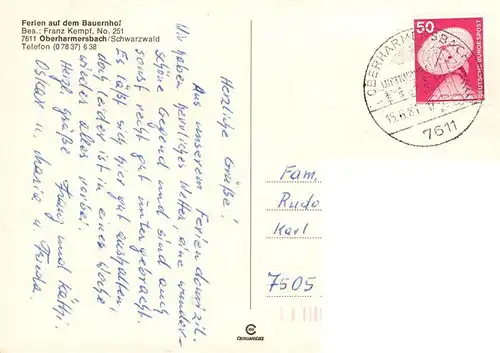 Ferien auf dem Bauernhof
Bes.: Franz Kempf, No. 251
7611 Oberharmersbach/Schwarzwald
Telefon (0 78 37) 6 38
Herzliche Grüße!
Aus unserem Feriendomizil.
Wir haben herrliches Wetter, eine wunder-
schöne Gegend und sind auch
sonst recht gut untergebracht.
Es läßt sich hier gut aushalten,
doch leider ist in einer Woche
wieder alles vorbei.
Herzl. Grüße Franz und Käthi
Oskar u. Maria u. Frieda.
50
DEUTSCHE BUNDESPOST
OBERHARMERSBACH
7611
Fam.
Rudo
Karl
7505